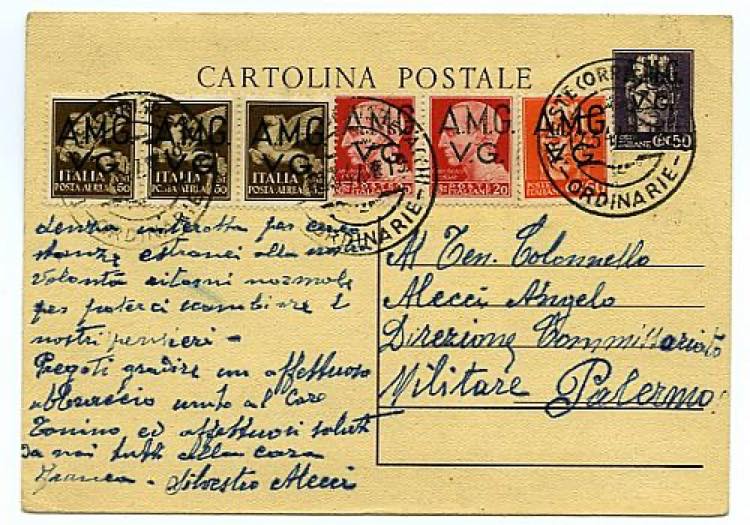 CARTOLINA POSTALE
A.M.G. V.G.
CENT. 50
A.M.G. V.G.
ITALIA
POSTA AEREA 50
A.M.G. V.G.
ITALIA
POSTA AEREA 50
A.M.G. V.G.
ITALIA
POSTA AEREA
A.M.G. V.G.
A.M.G. V.G.
20
A.M.G. V.G.
TRIESTE (CORR
ORDINARIE
denza interotta per circo
stanze estranei alla nostra
volontà ritorni normale
per poterci scambiare i
nostri pensieri -
Pregoti gradire un affettuoso
abbraccio unito al Caro
Tonino ed affettuosi saluti
da noi tutti della casa
Franca - Silvestro Alecci
Al Ten. Colonnello
Alecci Angelo
Direzione Commissariato
Militare Palermo